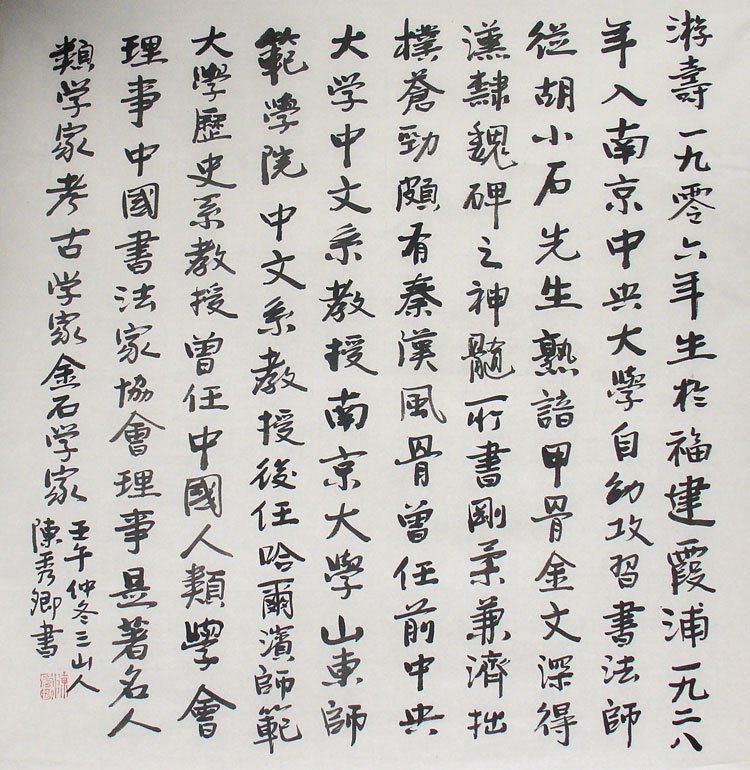 游壽一九零六年生於福建霞浦一九二八
年入南京中央大學自幼攻習書法師
從胡小石先生熟諳甲骨金文深得
漢隸魏碑之神髓所書剛柔兼濟拙
樸蒼勁頗有秦漢風骨曾任前中央
大学中文系教授南京大學山東師
範學院中文系教授後任哈爾濱師範
大學歷史系教授曾任中國人類學會
理事中國書法家協會理事是著名人
類学家考古学家金石学家
壬午仲冬三山人
陳秀卿書